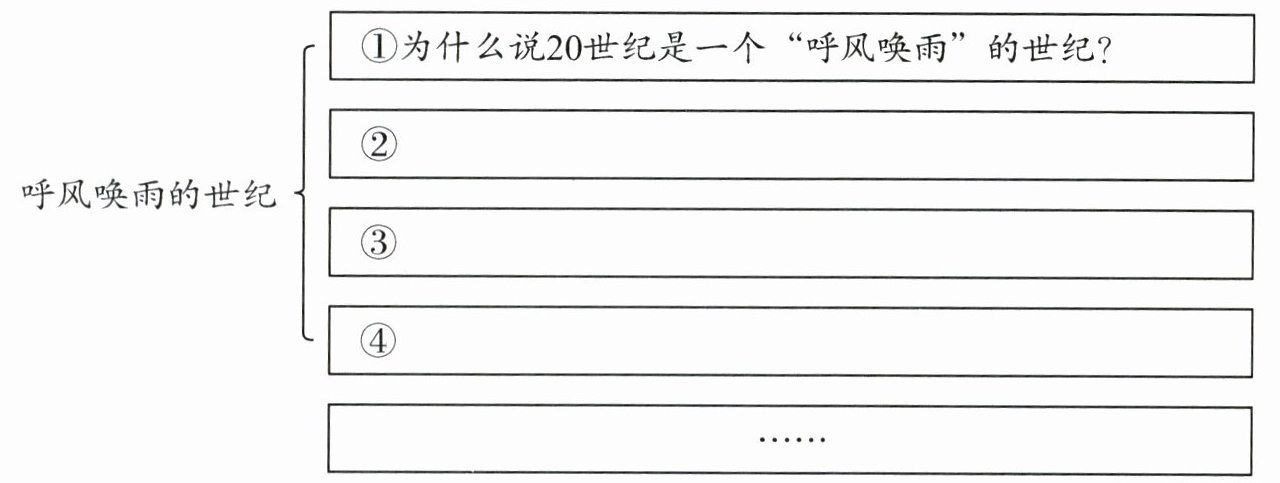 ①为什么说20世纪是一个“呼风唤雨”的世纪?
②
呼风唤雨的世纪
③
④
……